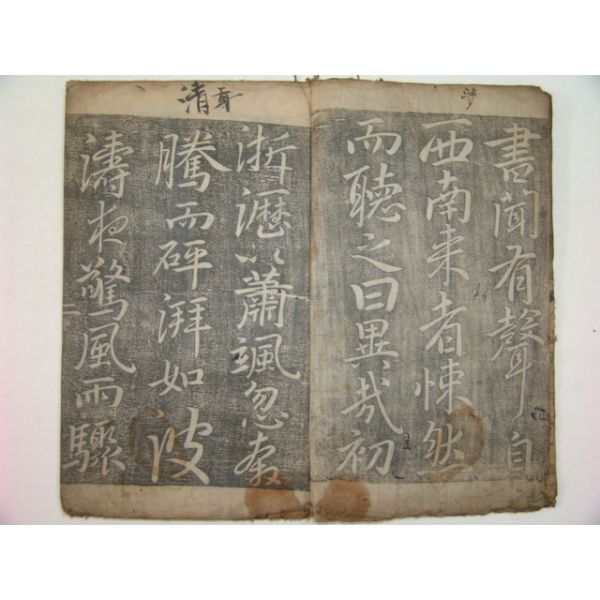 書聞有聲自
西南来者悚然
而聽之曰異哉初
清
淅瀝以蕭颯忽奔
騰而砰湃如波
濤夜驚風雨驟